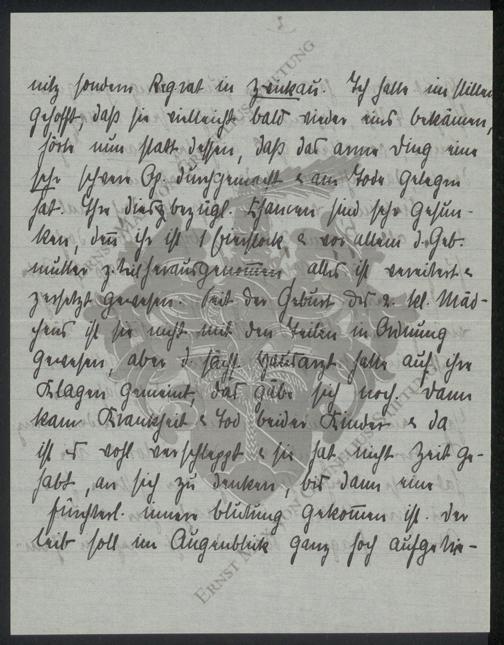 2
nitz sondern Regrat in Zwickau. Ich hatte im stillen
gehofft daß sie vielleicht bald wieder eins bekämen,
hörte nun statt dessen, daß das arme Ding eine
sehr schwere Op. durchgemacht & am Tode gelegen
hat. Ihre diesbezügl. Chancen sind sehr gesun-
ken, denn ihr ist 1 Eierstock & vor allem d. Geb.
mutter z. herausgenommen alles ist vereitert &
zersetzt gewesen. Seit der Geburt des 2. kl. Mäd-
chens ist sie nicht mit den teilen in Ordnung
gewesen, aber d. sächs. Hausarzt hatte auf ihre
Klagen gemeint, das gäbe sich noch. Dann
kam Krankheit & Tod beider Kinder & da
ist es wohl verschleppt & sie hat nicht Zeit ge-
habt, an sich zu denken, bis dann eine
fürchterl. innere Blutung gekommen ist. Der
Leib soll im Augenblick ganz hoch aufgetrie-
ERNST MORITZ CORNELIUS STIFTUNG